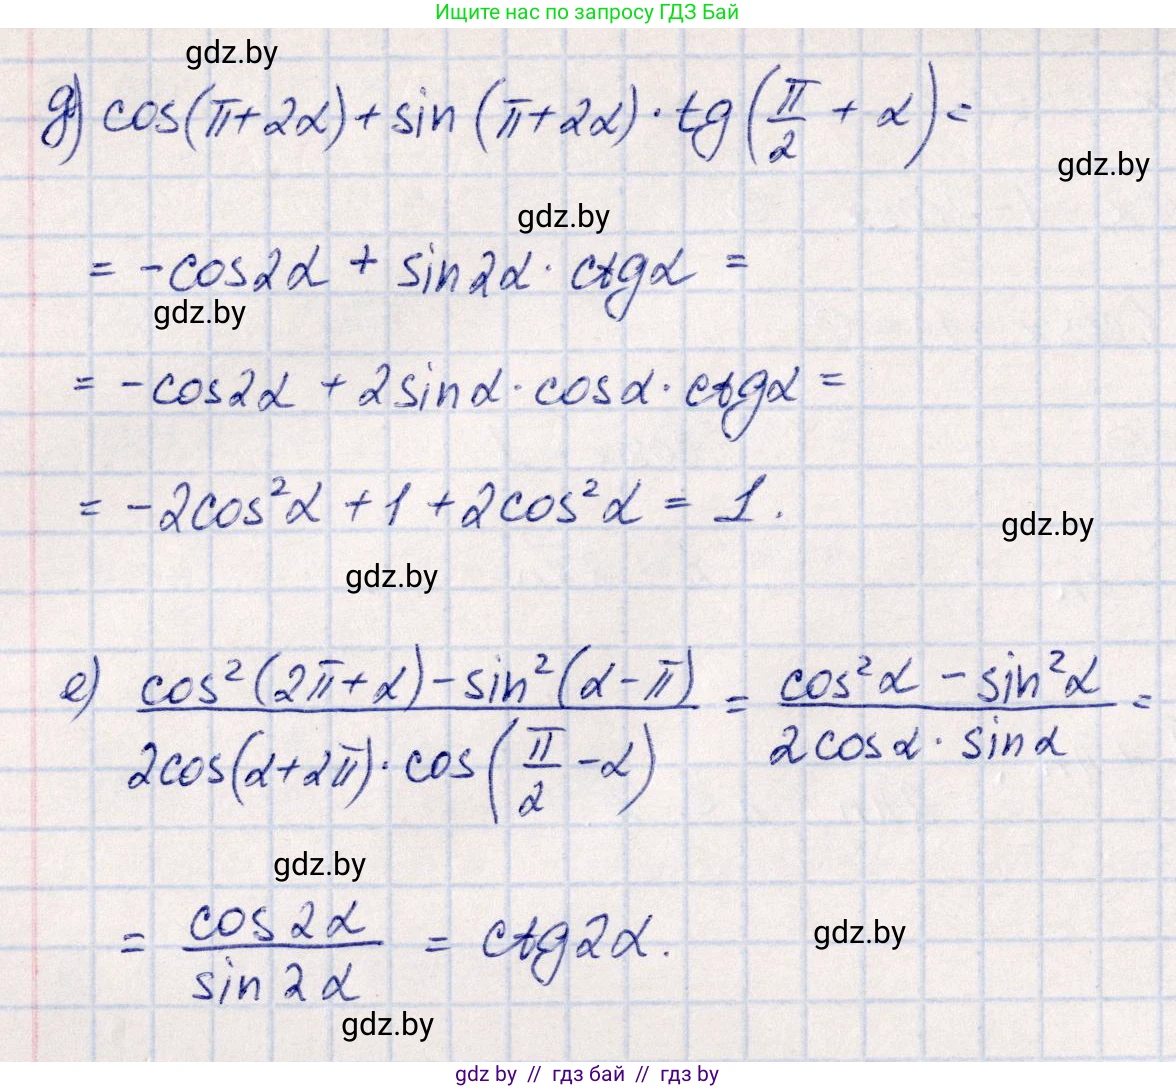 Ищите нас по запросу ГДЗ Бай
gdz.by
д) cos(π+2α)+sin(π+2α)·tg(π/2 + α)=
gdz.by
gdz.by
= -cos2α + sin2α·ctgα =
gdz.by
= -cos2α + 2sinα·cosα·ctgα =
= -2cos²α + 1 + 2cos²α = 1.
gdz.by
gdz.by
е) cos²(2π+α)-sin²(α-π) / 2cos(α+2π)·cos(π/2 - α) = cos²α - sin²α / 2cosα·sinα =
gdz.by
= cos2α / sin2α = ctg2α.
gdz.by
gdz.by
gdz by // гдз бай // гдз by